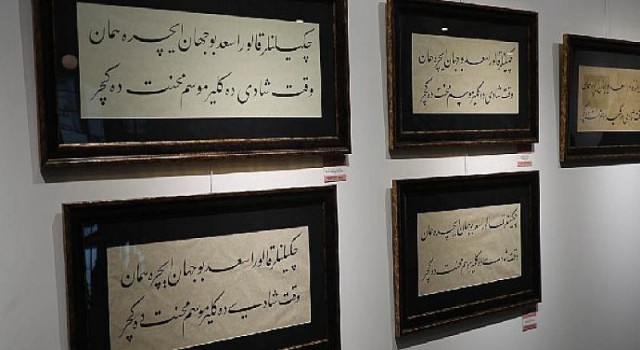 چكیلنلر قالور اسعد بو جهان ایچره همان
وقت شادی ده كلیر موسم محنت ده كچر
چكیلنلر قالور اسعد بو جهان ایچره همان
وقت شادی ده كلیر موسم محنت ده كچر
چكیلنلر قالور اسعد بو جهان ایچره همان
وقت شادی ده كلیر موسم محنت ده كچر
چكیلنلر قالور اسعد بو جهان ایچره همان
وقت شادی ده كلیر موسم محنت ده كچر